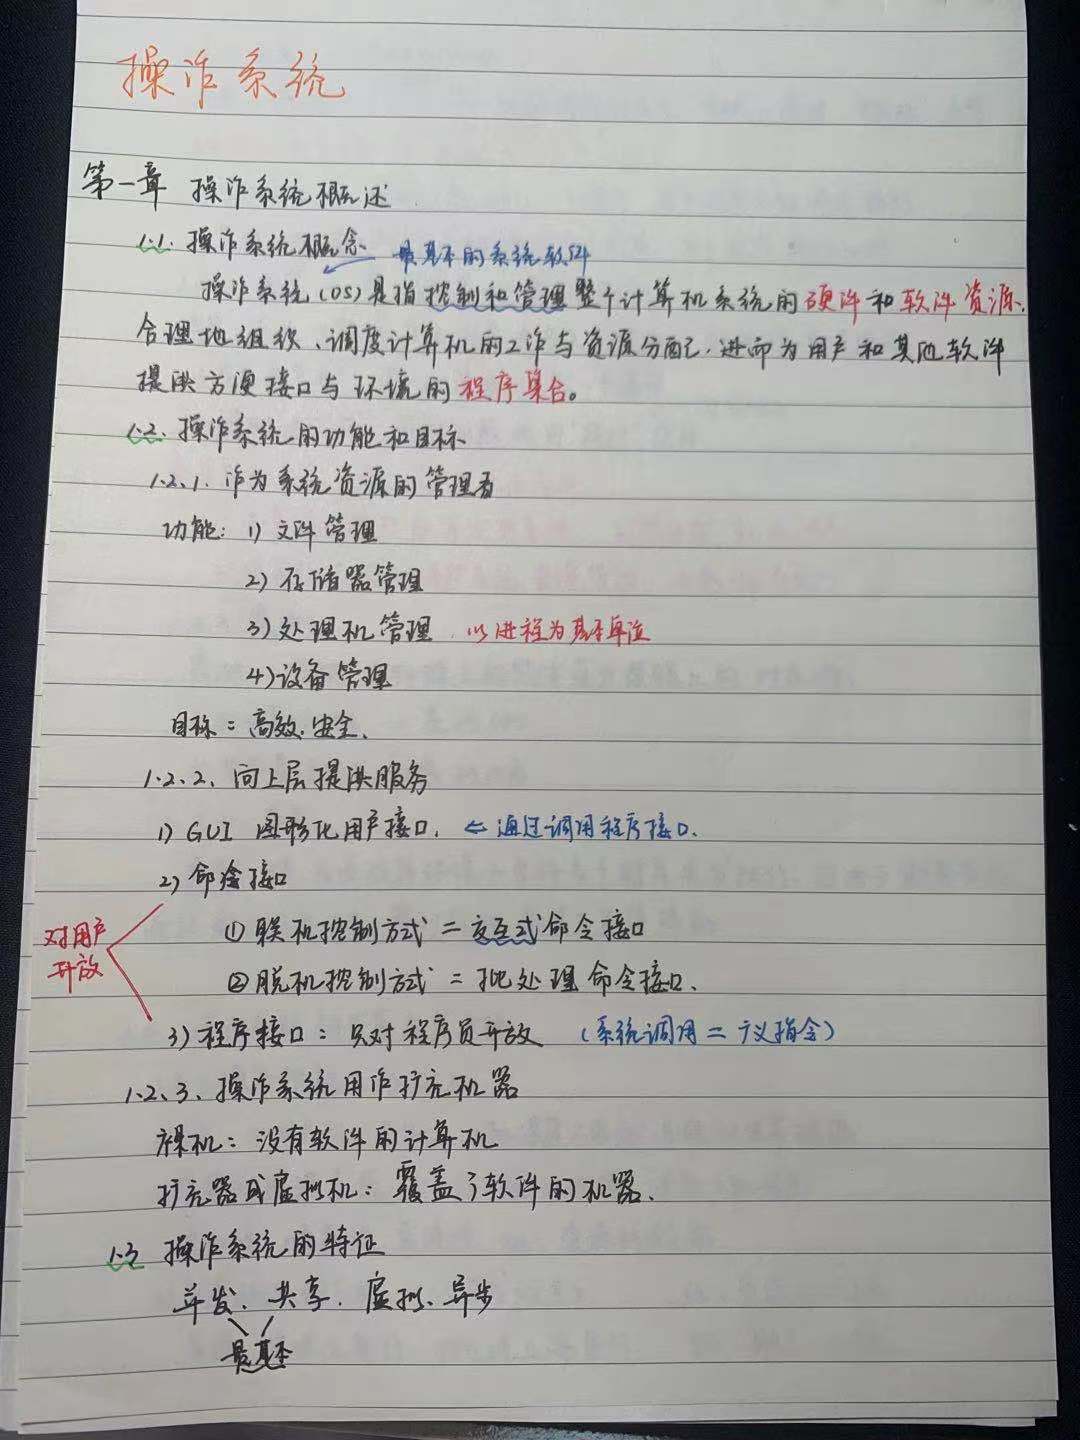 操作系统
第一章 操作系统概述
1.1. 操作系统概念 最基本的系统软件
操作系统(OS)是指控制和管理整个计算机系统的硬件和软件资源,
合理地组织、调度计算机的工作与资源分配,进而为用户和其他软件
提供方便接口与环境的程序集合。
1.2. 操作系统的功能和目标
1.2.1. 作为系统资源的管理者
功能: 1) 文件管理
2) 存储器管理
3) 处理机管理 以进程为基本单位
4) 设备管理
目标: 高效、安全、
1.2.2、向上层提供服务
1) GUI 图形化用户接口. ⇐ 通过调用程序接口.
2) 命令接口
对用户
开放
① 联机控制方式 = 交互式命令接口
② 脱机控制方式 = 批处理命令接口.
3) 程序接口: 只对程序员开放 (系统调用 = 广义指令)
1.2.3、操作系统用作扩充机器
裸机: 没有软件的计算机
扩充器或虚拟机: 覆盖了软件的机器.
1.3 操作系统的特征
并发、共享、虚拟、异步
最基本